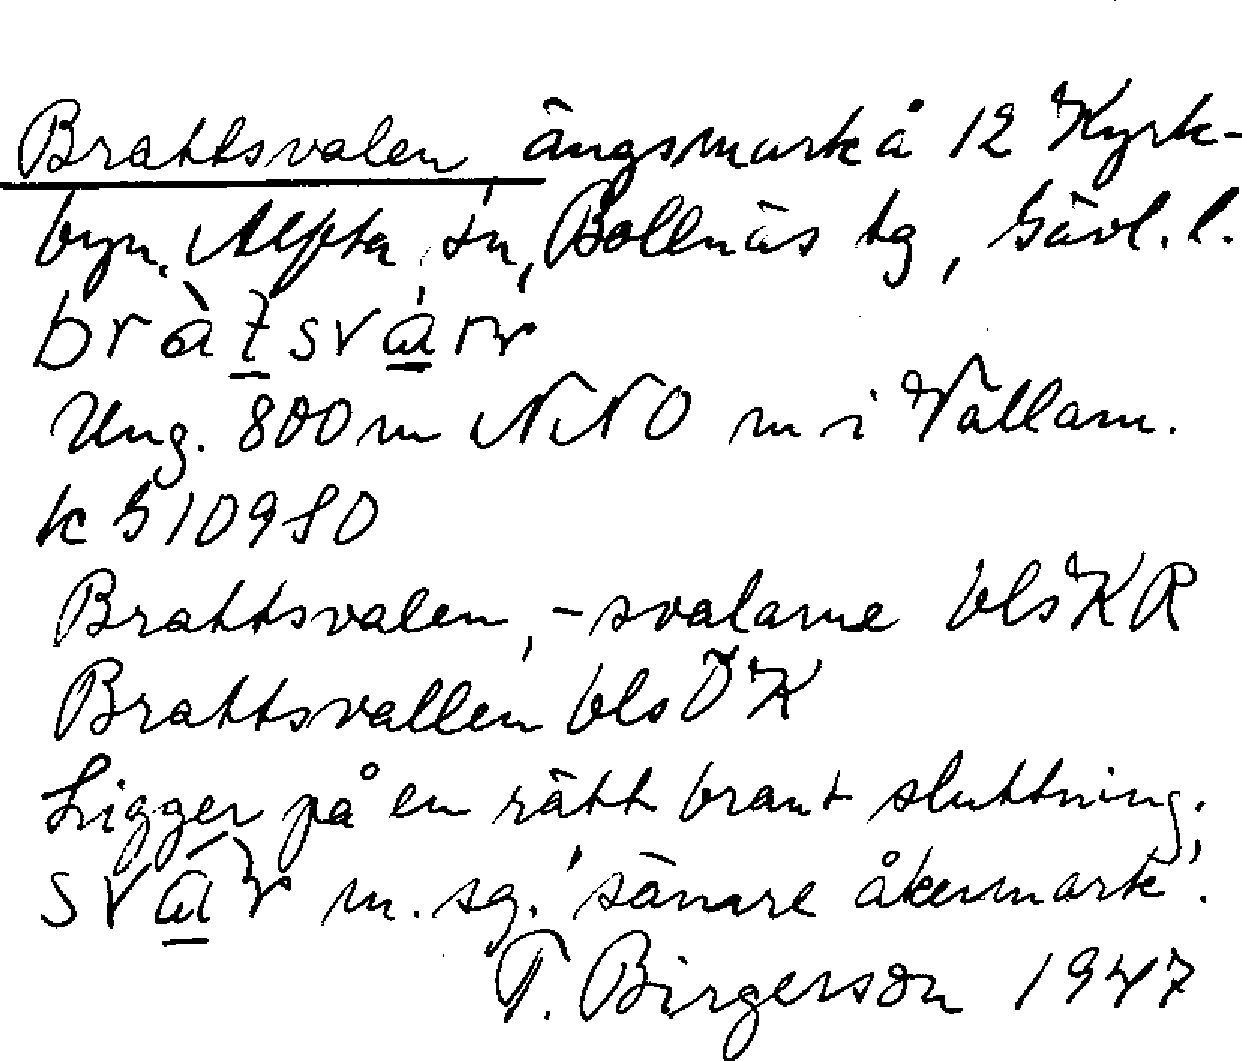 Brattsvalen, ängsmark å 12 Kyrk-
byn, Alfta sn, Bollnäs tg, Gävl. l.
Ung. 800 m NNO m i Vallam.
k 510980
Brattsvalen, -svalarne bls KR
Brattsvallen bls ÖK
Ligger på en rätt brant sluttning;
m. sg. 'sämre åkermark'.
T. Birgerson 1947